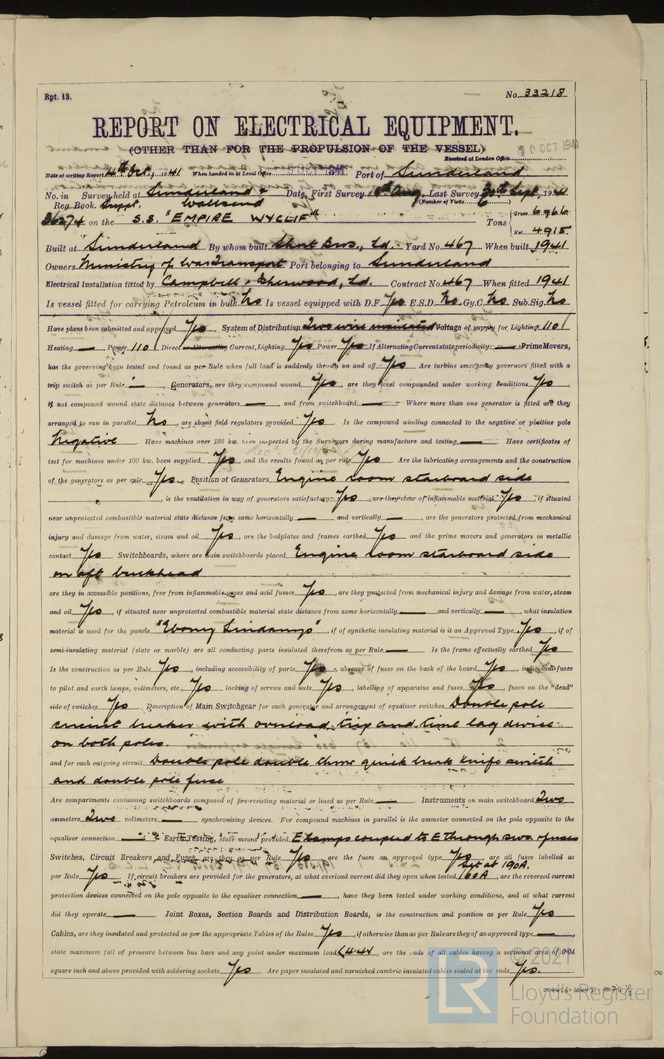 Rpt. 13.
No. 33218
REPORT ON ELECTRICAL EQUIPMENT.
(OTHER THAN FOR THE PROPULSION OF THE VESSEL)
Received at London Office
Date of writing Report 4th Oct 1941 When handed in at Local Office Port of Sunderland
No. in Survey held at Sunderland & Wallsend Date, First Survey Aug. Last Survey 30th Sept, 1941
Reg. Book. Suppt. (Number of Visits 6)
36274 on the S.S. "EMPIRE WYCLIF" Tons Gross 6966 Net 4915
Built at Sunderland By whom built Short Bros., Ld. Yard No. 467 When built 1941
Owners Ministry of War Transport Port belonging to Sunderland
Electrical Installation fitted by Campbell & Isherwood, Ld. Contract No. 467 When fitted 1941
Is vessel fitted for carrying Petroleum in bulk No Is vessel equipped with D.F. Yes E.S.D. No Gy.C. No Sub.Sig. No
Have plans been submitted and approved Yes System of Distribution Two wire insulated Voltage of supply for Lighting 110
Heating — Power 110 Direct or Alternating Current, Lighting Yes Power Yes If Alternating Current state periodicity — Prime Movers,
has the governing been tested and found as per Rule when full load is suddenly thrown on and off Yes Are turbine emergency governors fitted with a
trip switch as per Rule — Generators, are they compound wound Yes, are they level compounded under working conditions Yes,
if not compound wound state distance between generators — and from switchboard — Where more than one generator is fitted are they
arranged to run in parallel No, are shunt field regulators provided Yes Is the compound winding connected to the negative or positive pole
Negative Have machines over 100 kw. been inspected by the Surveyors during manufacture and testing — Have certificates of
test for machines under 100 kw. been supplied Yes and the results found as per rule Yes Are the lubricating arrangements and the construction
of the generators as per rule Yes Position of Generators Engine room starboard side
, is the ventilation in way of generators satisfactory Yes, are they clear of inflammable material Yes, if situated
near unprotected combustible material state distance from same horizontally — and vertically —, are the generators protected from mechanical
injury and damage from water, steam and oil Yes, are the bedplates and frames earthed Yes and the prime movers and generators in metallic
contact Yes Switchboards, where are main switchboards placed Engine room starboard side
on aft bulkhead
are they in accessible positions, free from inflammable gases and acid fumes Yes, are they protected from mechanical injury and damage from water, steam
and oil Yes, if situated near unprotected combustible material state distance from same horizontally — and vertically —, what insulation
material is used for the panels "Ebony Sindanyo", if of synthetic insulating material is it an Approved Type Yes, if of
semi-insulating material (slate or marble) are all conducting parts insulated therefrom as per Rule — Is the frame effectually earthed Yes
Is the construction as per Rule Yes, including accessibility of parts Yes, absence of fuses on the back of the board Yes, individual fuses
to pilot and earth lamps, voltmeters, etc. Yes locking of screws and nuts Yes, labelling of apparatus and fuses Yes, fuses on the "dead"
side of switches Yes Description of Main Switchgear for each generator and arrangement of equaliser switches Double pole
circuit breaker with overload trip and time lag device
on both poles.
and for each outgoing circuit Double pole double throw quick break knife switch
and double pole fuse
Are compartments containing switchboards composed of fire-resisting material or lined as per Rule — Instruments on main switchboard Two
ammeters Two voltmeters — synchronising devices. For compound machines in parallel is the ammeter connected on the pole opposite to the
equaliser connection — Earth Testing, state means provided E lamps coupled to E through sws. & fuses
Switches, Circuit Breakers and Fuses, are they as per Rule Yes, are the fuses an approved type Yes, are all fuses labelled as
Set at 190A.
per Rule Yes If circuit breakers are provided for the generators, at what overload current did they open when tested 160A, are the reversed current
protection devices connected on the pole opposite to the equaliser connection —, have they been tested under working conditions, and at what current
did they operate — Joint Boxes, Section Boards and Distribution Boards, is the construction and position as per Rule Yes
Cables, are they insulated and protected as per the appropriate Tables of the Rules Yes, if otherwise than as per Rule are they of an approved type —
state maximum fall of pressure between bus bars and any point under maximum load 4.4v, are the ends of all cables having a sectional area of 0·04
square inch and above provided with soldering sockets Yes Are paper insulated and varnished cambric insulated cables sealed at the ends Yes.
© 2021
LR
Lloyd's Register
Foundation